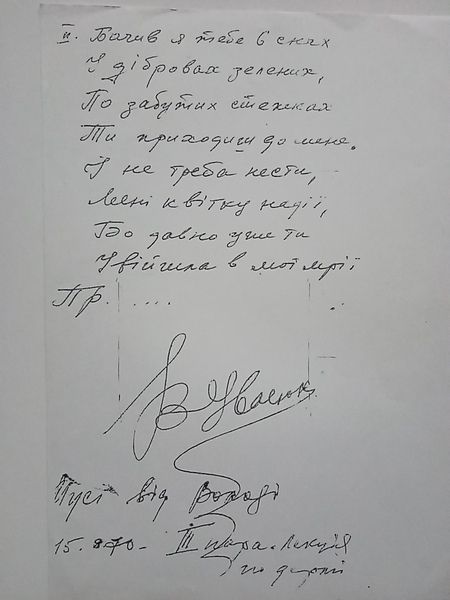 II. Бачив я тебе в снах
У дібровах зелених,
По забутих стежках
Ти приходиш до мене.
І не треба нести,
Мені квітку надії,
Бо давно уже ти
Увійшла в мої мрії
Пр. ....
В Івасюк
від Володі
III пара. Лекція
по